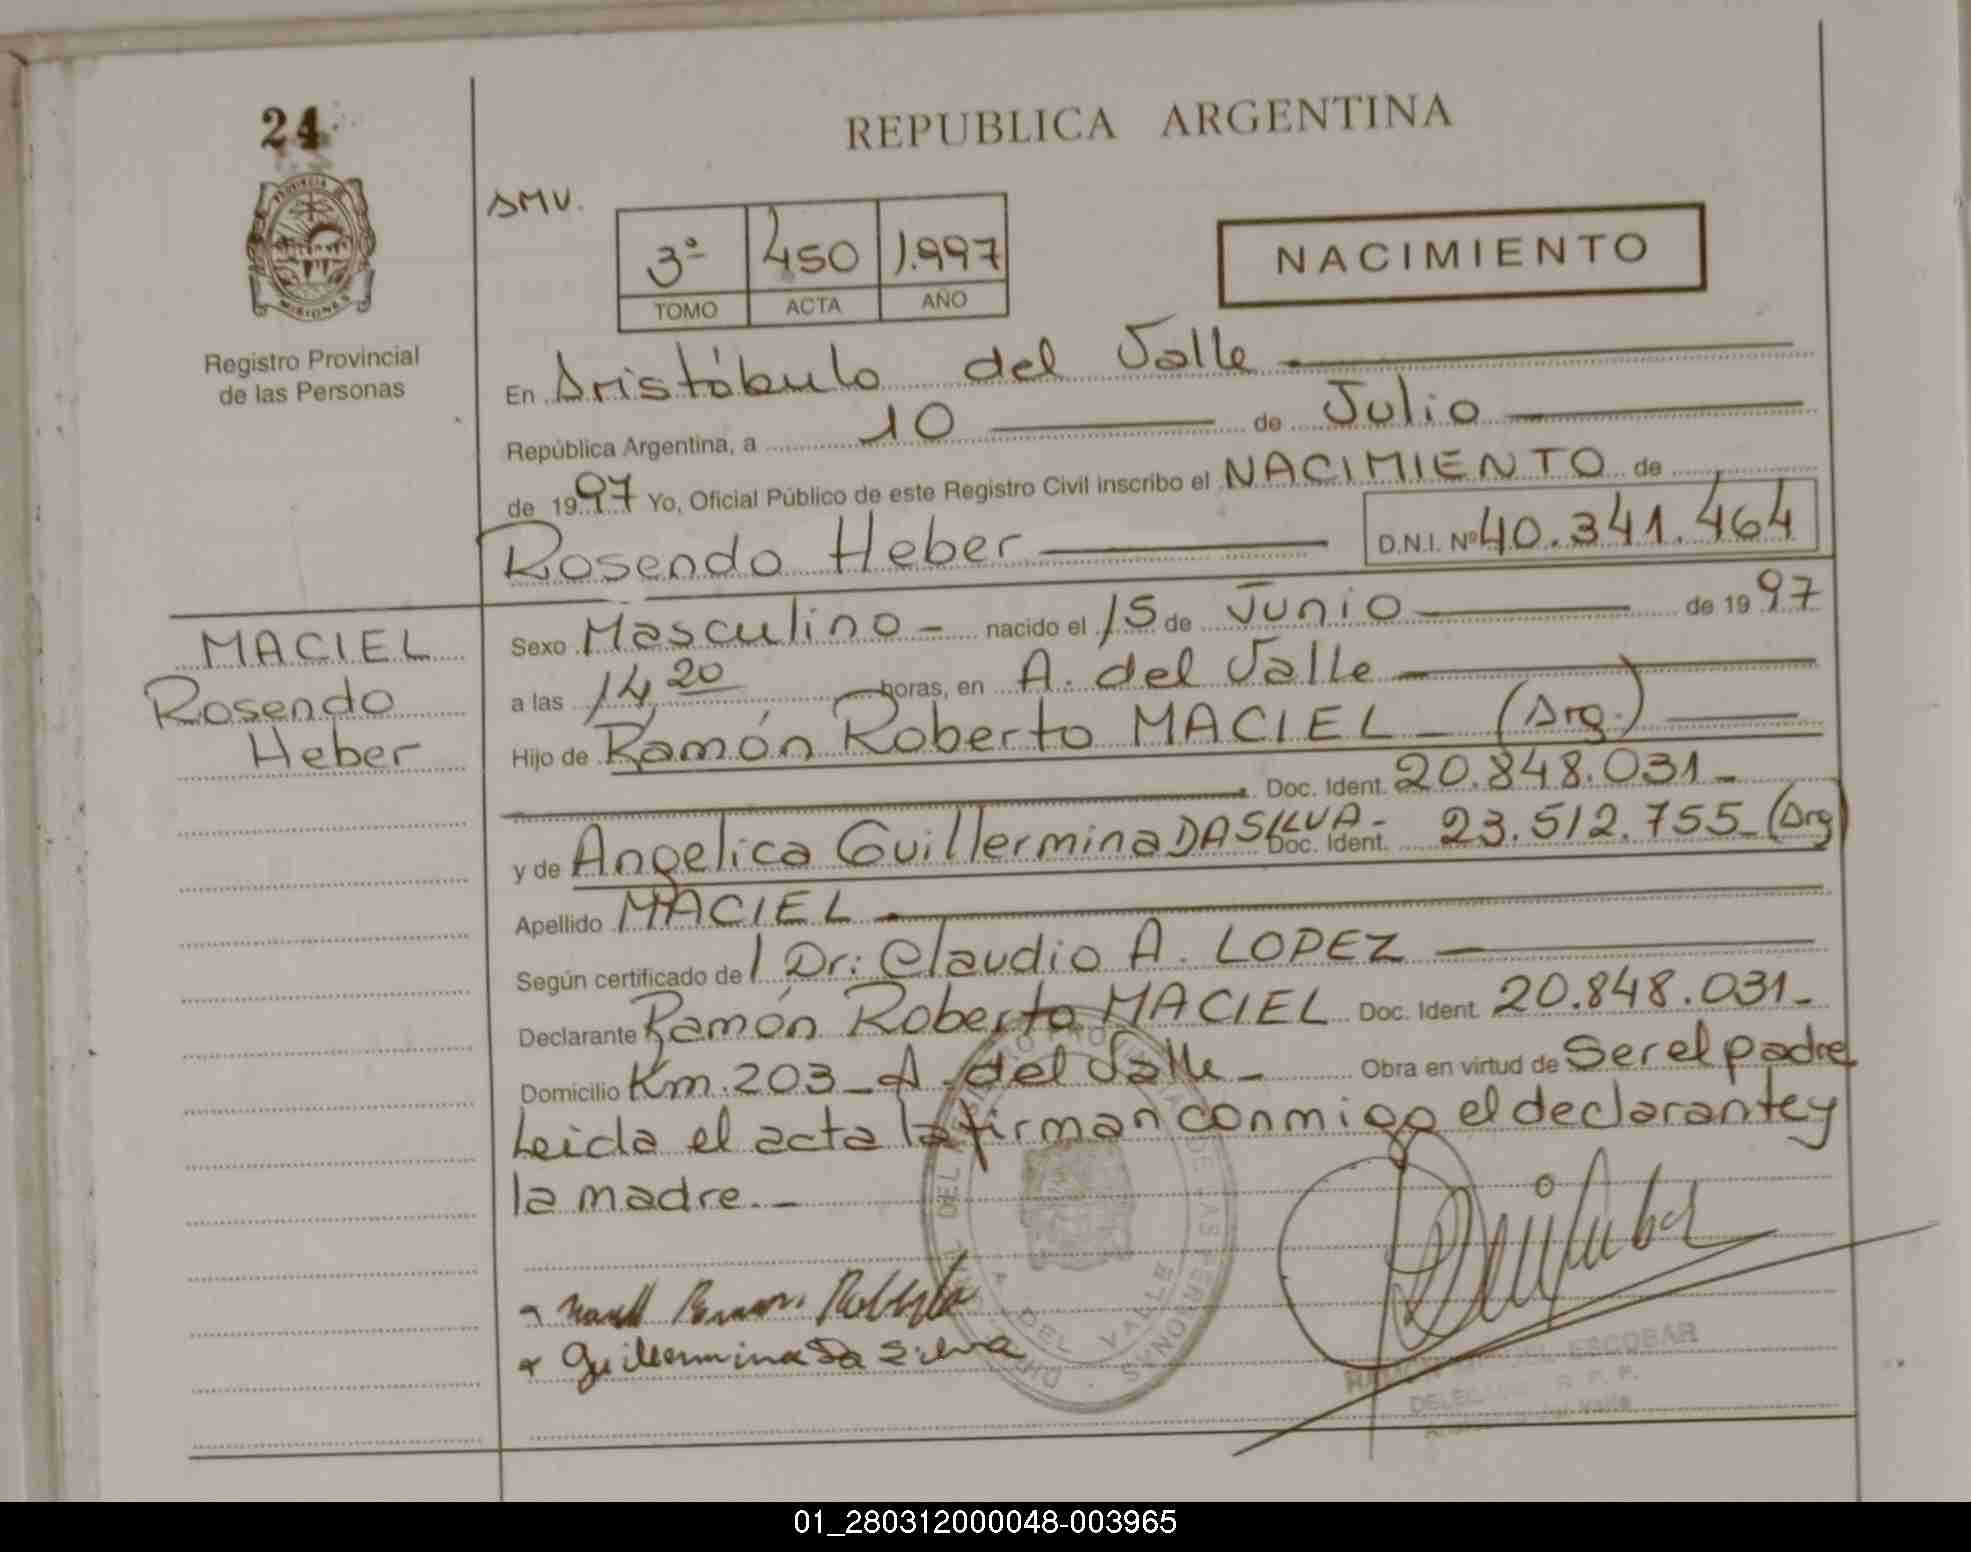 24
REPUBLICA ARGENTINA
PROVINCIA DE
MISIONES
SMV.
3º 450 1.997
TOMO ACTA AÑO
NACIMIENTO
Registro Provincial
de las Personas
En Aristóbulo del Valle
República Argentina, a 10 de Julio
de 1997 Yo, Oficial Público de este Registro Civil inscribo el NACIMIENTO de
Rosendo Heber D.N.I. Nº 40.341.464
MACIEL
Rosendo
Heber
Sexo Masculino - nacido el 15 de Junio de 1997
a las 14,20 horas, en A. del Valle
Hijo de Ramón Roberto MACIEL - (Arg.)
Doc. Ident. 20.848.031-
y de Angelica Guillermina DA SILVA- Doc. Ident. 23.512.755-(Arg)
Apellido MACIEL
Según certificado de l Dr: Claudio A. LOPEZ
Declarante Ramón Roberto MACIEL Doc. Ident. 20.848.031-
Domicilio Km.203-A.del Valle- Obra en virtud de Ser el padre
Leida el acta la firman conmigo el declarante y
la madre.-
Guillermina Da Silva
A. DEL VALLE
ESCOBAR
01_280312000048-003965